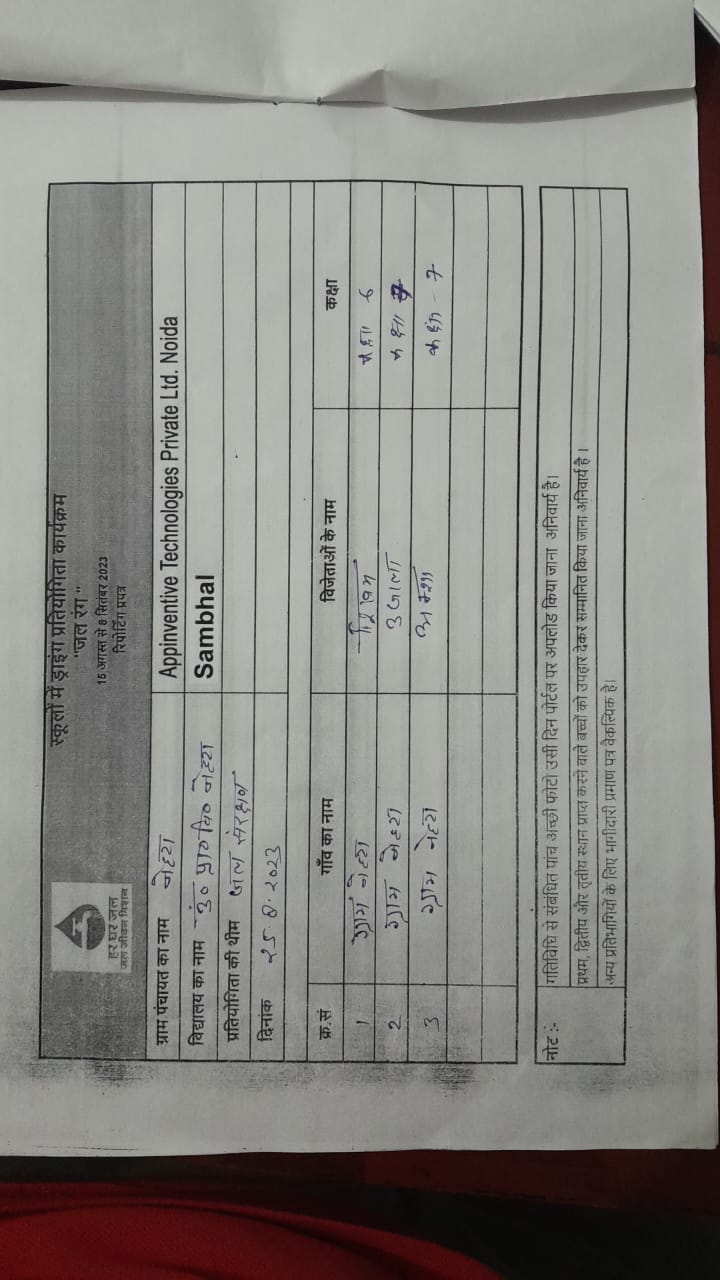 स्कूलों में ड्राइंग प्रतियोगिता कार्यक्रम
"जल रंग"
15 अगस्त से 8 सितंबर 2023
रिपोर्टिंग प्रपत्र
हर घर जल
जल जीवन मिशन
ग्राम पंचायत का नाम नेहटा Appinventive Technologies Private Ltd. Noida
विद्यालय का नाम उ० प्रा० वि० नेहटा Sambhal
प्रतियोगिता की थीम जल संरक्षण
दिनांक २५.8.२०२३
क्र.सं गाँव का नाम विजेताओं के नाम कक्षा
1 ग्राम नेहटा कक्षा 6
2 ग्राम नेहटा उजाला कक्षा
3 ग्राम नेहटा कक्षा - 7
नोट :- गतिविधि से संबंधित पांच अच्छी फोटो उसी दिन पोर्टल पर अपलोड किया जाना अनिवार्य है।
प्रथम, द्वितीय और तृतीय स्थान प्राप्त करने वाले बच्चों को उपहार देकर सम्मानित किया जाना अनिवार्य है।
अन्य प्रतिभागियों के लिए भागीदारी प्रमाण पत्र वैकल्पिक है।